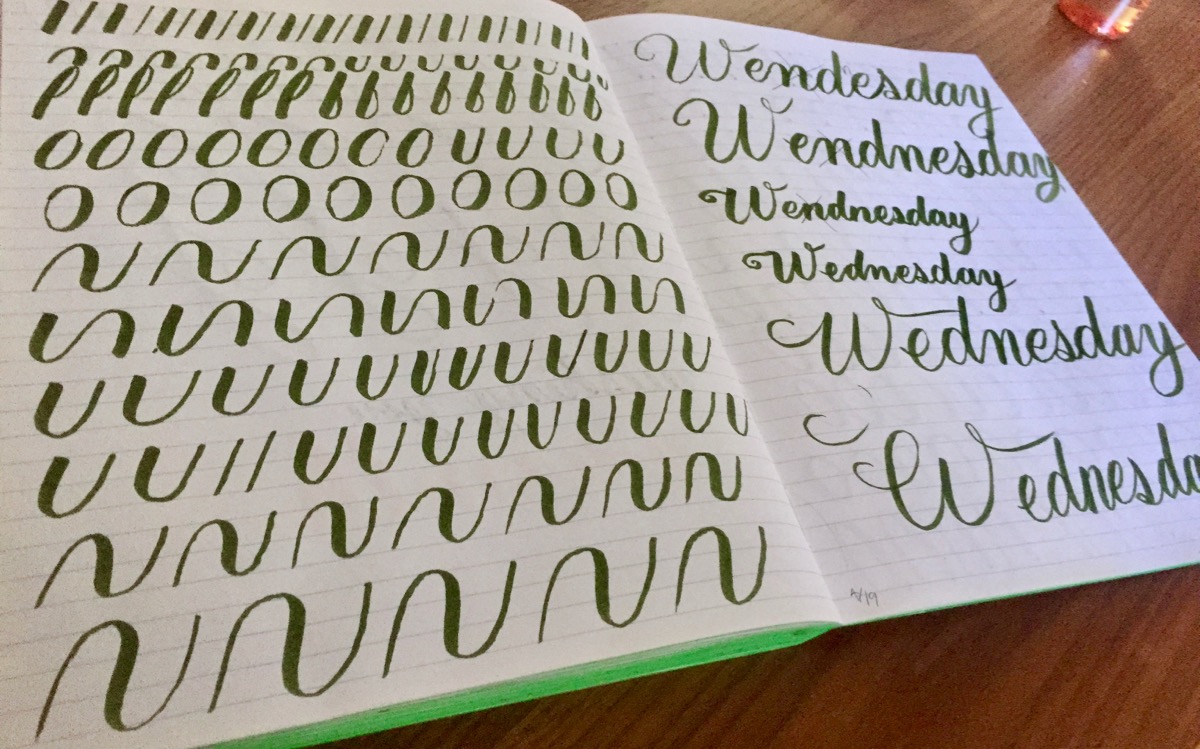 Wendesday
Wendnesday
Wendnesday
Wednesday
Wednesday
Wednesda
5/19